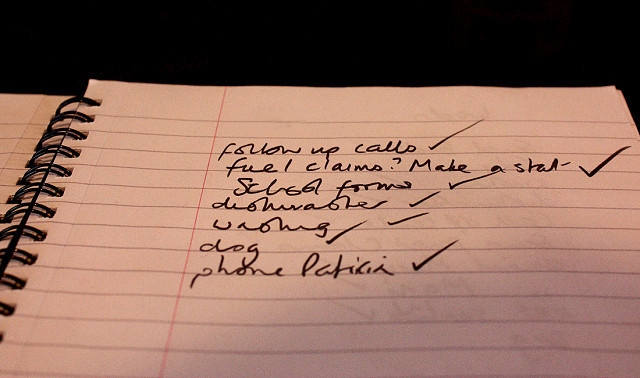 follow up calls ✓
fuel claims? Make a start ✓
School forms ✓
dishwasher ✓
washing ✓
dog ✓
phone Patricia ✓